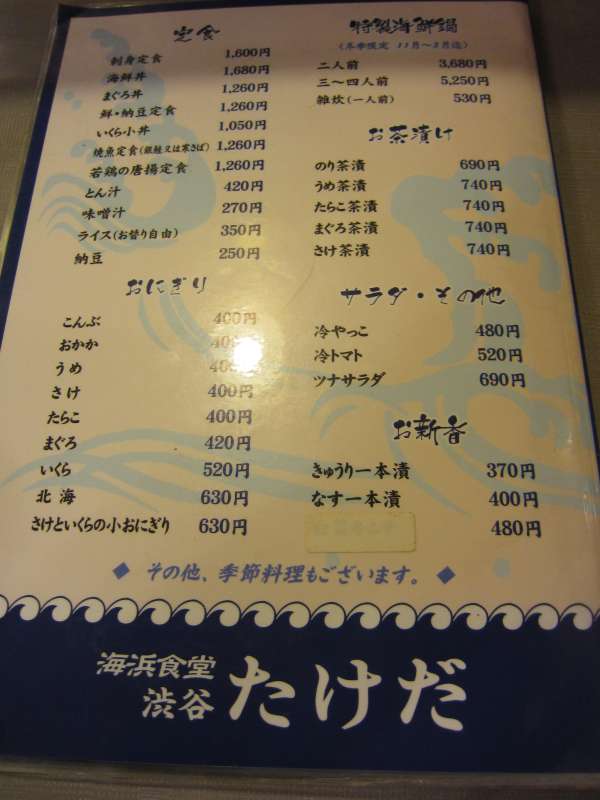 定食
刺身定食 1,600円
海鮮丼 1,680円
まぐろ丼 1,260円
鮮・納豆定食 1,260円
いくら小丼 1,050円
焼魚定食(銀鮭又は寒さば) 1,260円
若鶏の唐揚定食 1,260円
とん汁 420円
味噌汁 270円
ライス(お替り自由) 350円
納豆 250円
おにぎり
こんぶ 400円
おかか 400円
うめ 400円
さけ 400円
たらこ 400円
まぐろ 420円
いくら 520円
北海 630円
さけといくらの小おにぎり 630円
特製海鮮鍋
(冬季限定 11月〜3月迄)
二人前 3,680円
三〜四人前 5,250円
雑炊(一人前) 530円
お茶漬け
のり茶漬 690円
うめ茶漬 740円
たらこ茶漬 740円
まぐろ茶漬 740円
さけ茶漬 740円
サラダ・その他
冷やっこ 480円
冷トマト 520円
ツナサラダ 690円
お新香
きゅうり一本漬 370円
なす一本漬 400円
480円
◆ その他、季節料理もございます。 ◆
海浜食堂
渋谷 たけだ